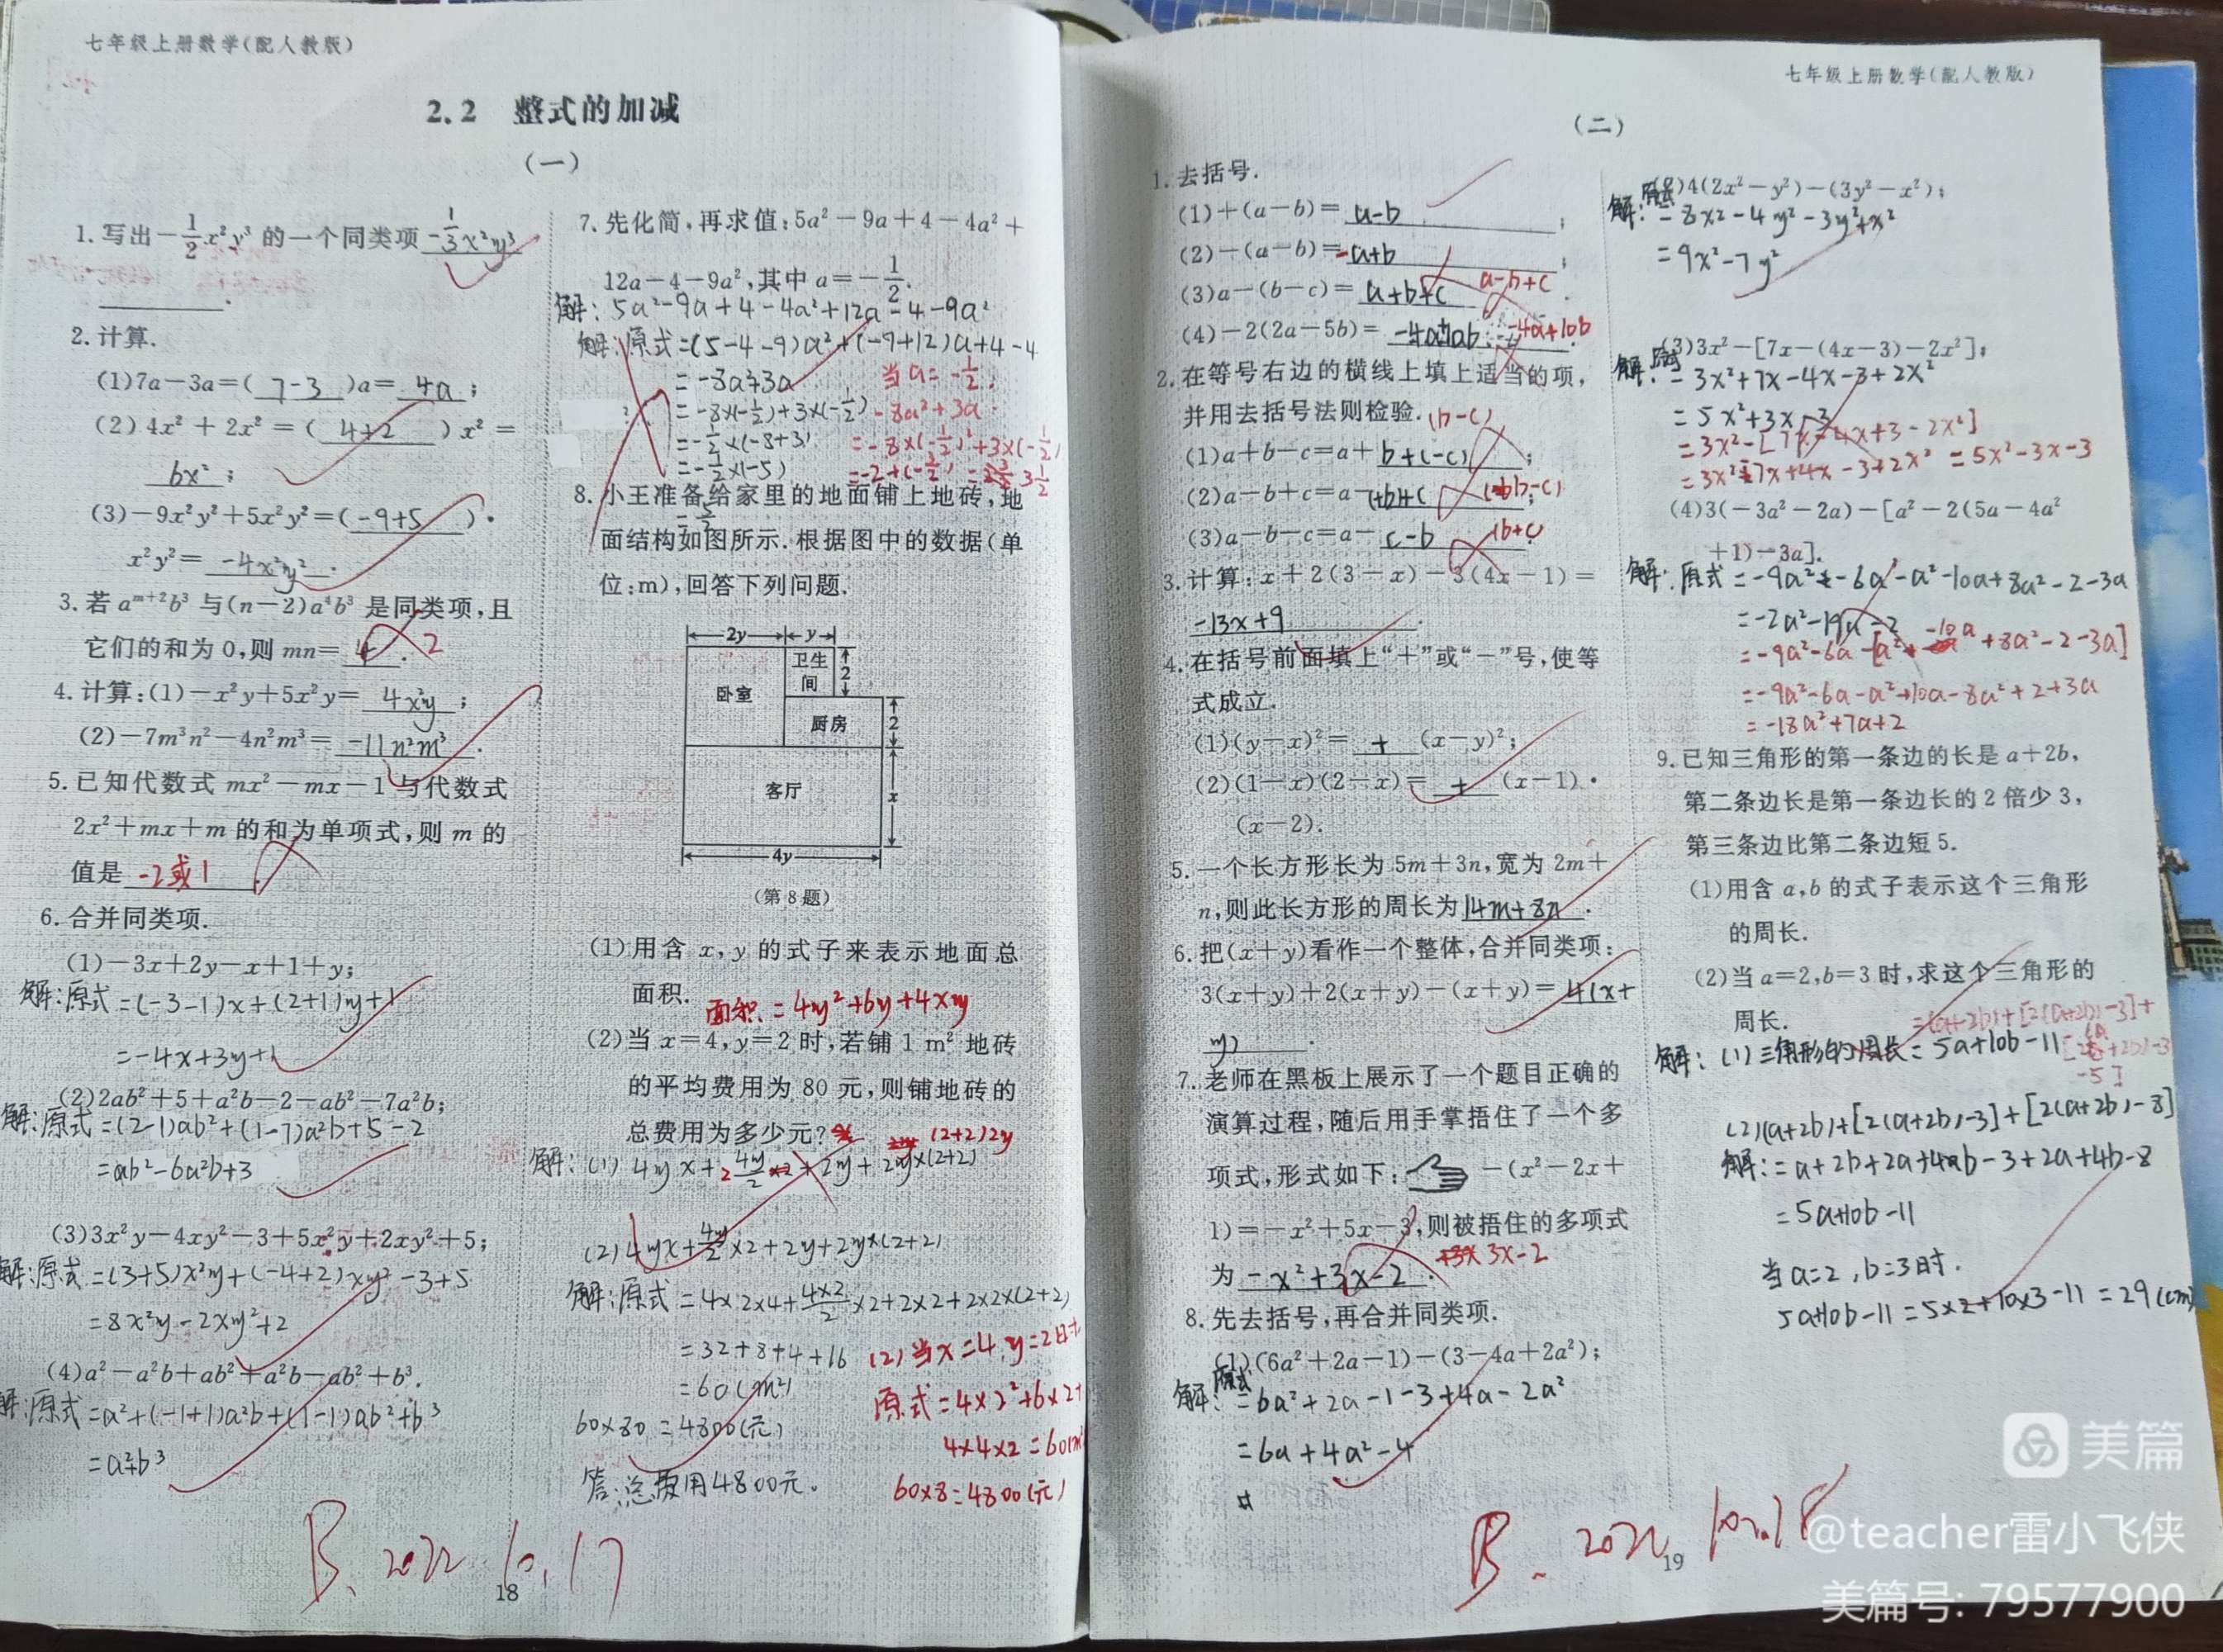 七年级上册数学(配人教版)
2.2 整式的加减
(一)
1.写出-1/2x²y³的一个同类项 -1/3x²y³
.
2.计算.
(1)7a-3a=( 7-3 )a= 4a ;
(2)4x²+2x²=( 4+2 )x²=
6x² ;
(3)-9x²y²+5x²y²=( -9+5 )·
x²y²= -4x²y² .
3.若aᵐ⁺²b³与(n-2)a⁴b³是同类项,且
它们的和为0,则mn= 4 . 2
4.计算:(1)-x²y+5x²y= 4x²y ;
(2)-7m³n²-4n²m³= -11n²m³ .
5.已知代数式mx²-mx-1与代数式
2x²+mx+m的和为单项式,则m的
值是 -2或1 .
6.合并同类项.
(1)-3x+2y-x+1+y;
解:原式=(-3-1)x+(2+1)y+1
=-4x+3y+1
(2)2ab²+5+a²b-2-ab²-7a²b;
解:原式=(2-1)ab²+(1-7)a²b+5-2
=ab²-6a²b+3
(3)3x²y-4xy²-3+5x²y+2xy²+5;
解:原式=(3+5)x²y+(-4+2)xy²-3+5
=8x²y-2xy²+2
(4)a²-a²b+ab²+a²b-ab²+b³.
解:原式=a²+(-1+1)a²b+(1-1)ab²+b³
=a²+b³
7.先化简,再求值:5a²-9a+4-4a²+
12a-4-9a²,其中a=-1/2.
解:5a²-9a+4-4a²+12a-4-9a²
解:原式=(5-4-9)a²+(-9+12)a+4-4
=-8a²+3a 当a=-1/2.
=-8×(-1/2)+3×(-1/2) -8a²+3a
=-1/2×(-8+3) =-8×(-1/2)²+3×(-1/2)
=-1/2×(-5) =-2+(-3/2)= 3 1/2
8.小王准备给家里的地面铺上地砖,地
面结构如图所示.根据图中的数据(单
位:m),回答下列问题.
2y y
卫生
间
2
卧室
厨房
2
客厅
x
4y
(第8题)
(1)用含x,y的式子来表示地面总
面积. 面积:=4y²+6y+4xy
(2)当x=4,y=2时,若铺1m²地砖
的平均费用为80元,则铺地砖的
总费用为多少元? (2+2)2y
解:(1)4yx+2 4y/2×2+2y+2y×(2+2)
(2)4yx+4y/2×2+2y+2y×(2+2)
解:原式=4×2×4+4×2/2×2+2×2+2×2×(2+2)
=32+8+4+16 (2)当x=4,y=2时
=60(m²) 原式=4×2²+6×2+
60×80=4800(元) 4×4×2=60m²
答:总费用4800元. 60×8=4800(元)
B. 2022.10.17
18
七年级上册数学(配人教版)
(二)
1.去括号.
(1)+(a-b)= a-b ;
(2)-(a-b)= -a+b ;
(3)a-(b-c)= a+b+c . a-b+c
(4)-2(2a-5b)= -4a+10b . -4a+10b
2.在等号右边的横线上填上适当的项,
并用去括号法则检验. (b-c)
(1)a+b-c=a+ b+(-c) ;
(2)a-b+c=a- (+b)+c ; (b-c)
(3)a-b-c=a- c-b . (b+c)
3.计算:x+2(3-x)-3(4x-1)=
-13x+9 .
4.在括号前面填上“+”或“-”号,使等
式成立.
(1)(y-x)²= + (x-y)²;
(2)(1-x)(2-x)= + (x-1)·
(x-2).
5.一个长方形长为5m+3n,宽为2m+
n,则此长方形的周长为 14m+8n .
6.把(x+y)看作一个整体,合并同类项:
3(x+y)+2(x+y)-(x+y)= 4(x+
y) .
7.老师在黑板上展示了一个题目正确的
演算过程,随后用手掌捂住了一个多
项式,形式如下: -(x²-2x+
1)=-x²+5x-3,则被捂住的多项式
为 -x²+3x-2 . 3x-2
8.先去括号,再合并同类项.
(1)(6a²+2a-1)-(3-4a+2a²);
解:原式=6a²+2a-1-3+4a-2a²
=6a+4a²-4
(2)4(2x²-y²)-(3y²-x²);
解:原式=8x2-4y²-3y²+x²
=9x²-7y²
(3)3x²-[7x-(4x-3)-2x²];
解:原式=3x²+7x-4x-3+2x²
=5x²+3x-3
=3x²-[7x-4x+3-2x²]
=3x²-7x+4x-3+2x²=5x²-3x-3
(4)3(-3a²-2a)-[a²-2(5a-4a²
+1)-3a].
解:原式=-9a²-6a-a²-10a+8a²-2-3a
=-2a²-19a-2
=-9a²-6a-[a²-10a+8a²-2-3a]
=-9a²-6a-a²+10a-8a²+2+3a
=-18a²+7a+2
9.已知三角形的第一条边的长是a+2b,
第二条边长是第一条边长的2倍少3,
第三条边比第二条边短5.
(1)用含a,b的式子表示这个三角形
的周长.
(2)当a=2,b=3时,求这个三角形的
周长. =(a+2b)+[2(a+2b)-3]+
解:(1)三角形的周长=5a+10b-11
-5]
(2)(a+2b)+[2(a+2b)-3]+[2(a+2b)-8]
解:=a+2b+2a+4b-3+2a+4b-8
=5a+10b-11
当a=2,b=3时.
5a+10b-11=5×2+10×3-11=29(cm)
B. 2022.10.18
19
美篇
@teacher雷小飞侠
美篇号: 79577900